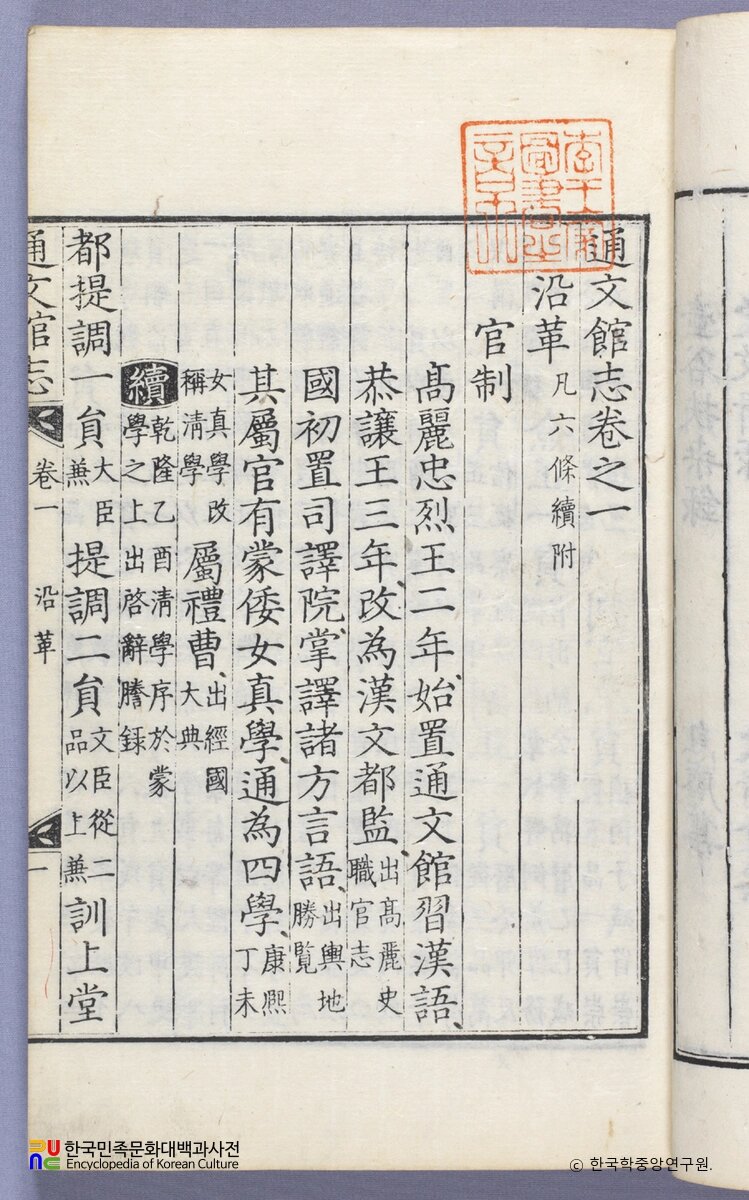 通文館志卷之一
沿革 凡六條續附
官制
高麗忠烈王二年、始置通文館習漢語、
恭讓王三年、改為漢文都監、出高麗史職官志
國初置司譯院、掌譯諸方言語、出輿地勝覽
其屬官有蒙倭女真學、通為四學、康熙丁未
女真學改稱清學 屬禮曹、出經國大典
續 乾隆乙酉清學序於蒙學之上出啓辭謄錄
都提調一員 大臣兼 提調二員 文臣從二品以上兼 訓上堂
通文館志 卷一 沿革 一
한국민족문화대백과사전
Encyclopedia of Korean Culture
© 한국학중앙연구원.